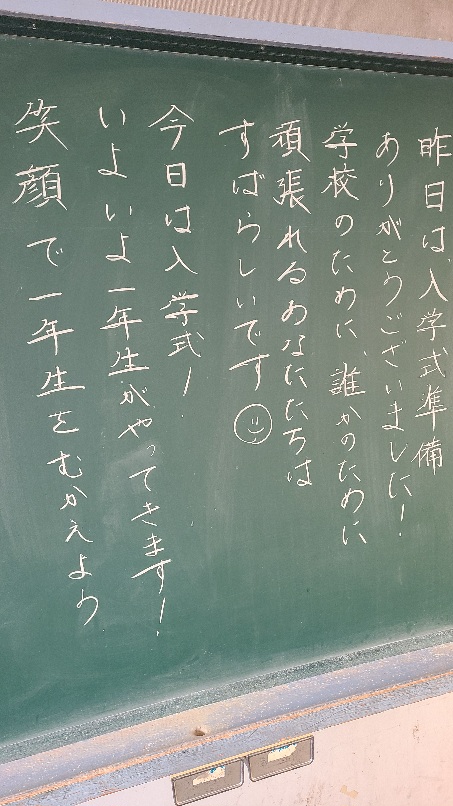 昨日は、入学式準備
ありがとうございました！
学校のために、誰かのために
頑張れるあなたたちは
すばらしいです
今日は入学式！
いよいよ一年生がやってきます！
笑顔で一年生をむかえよう